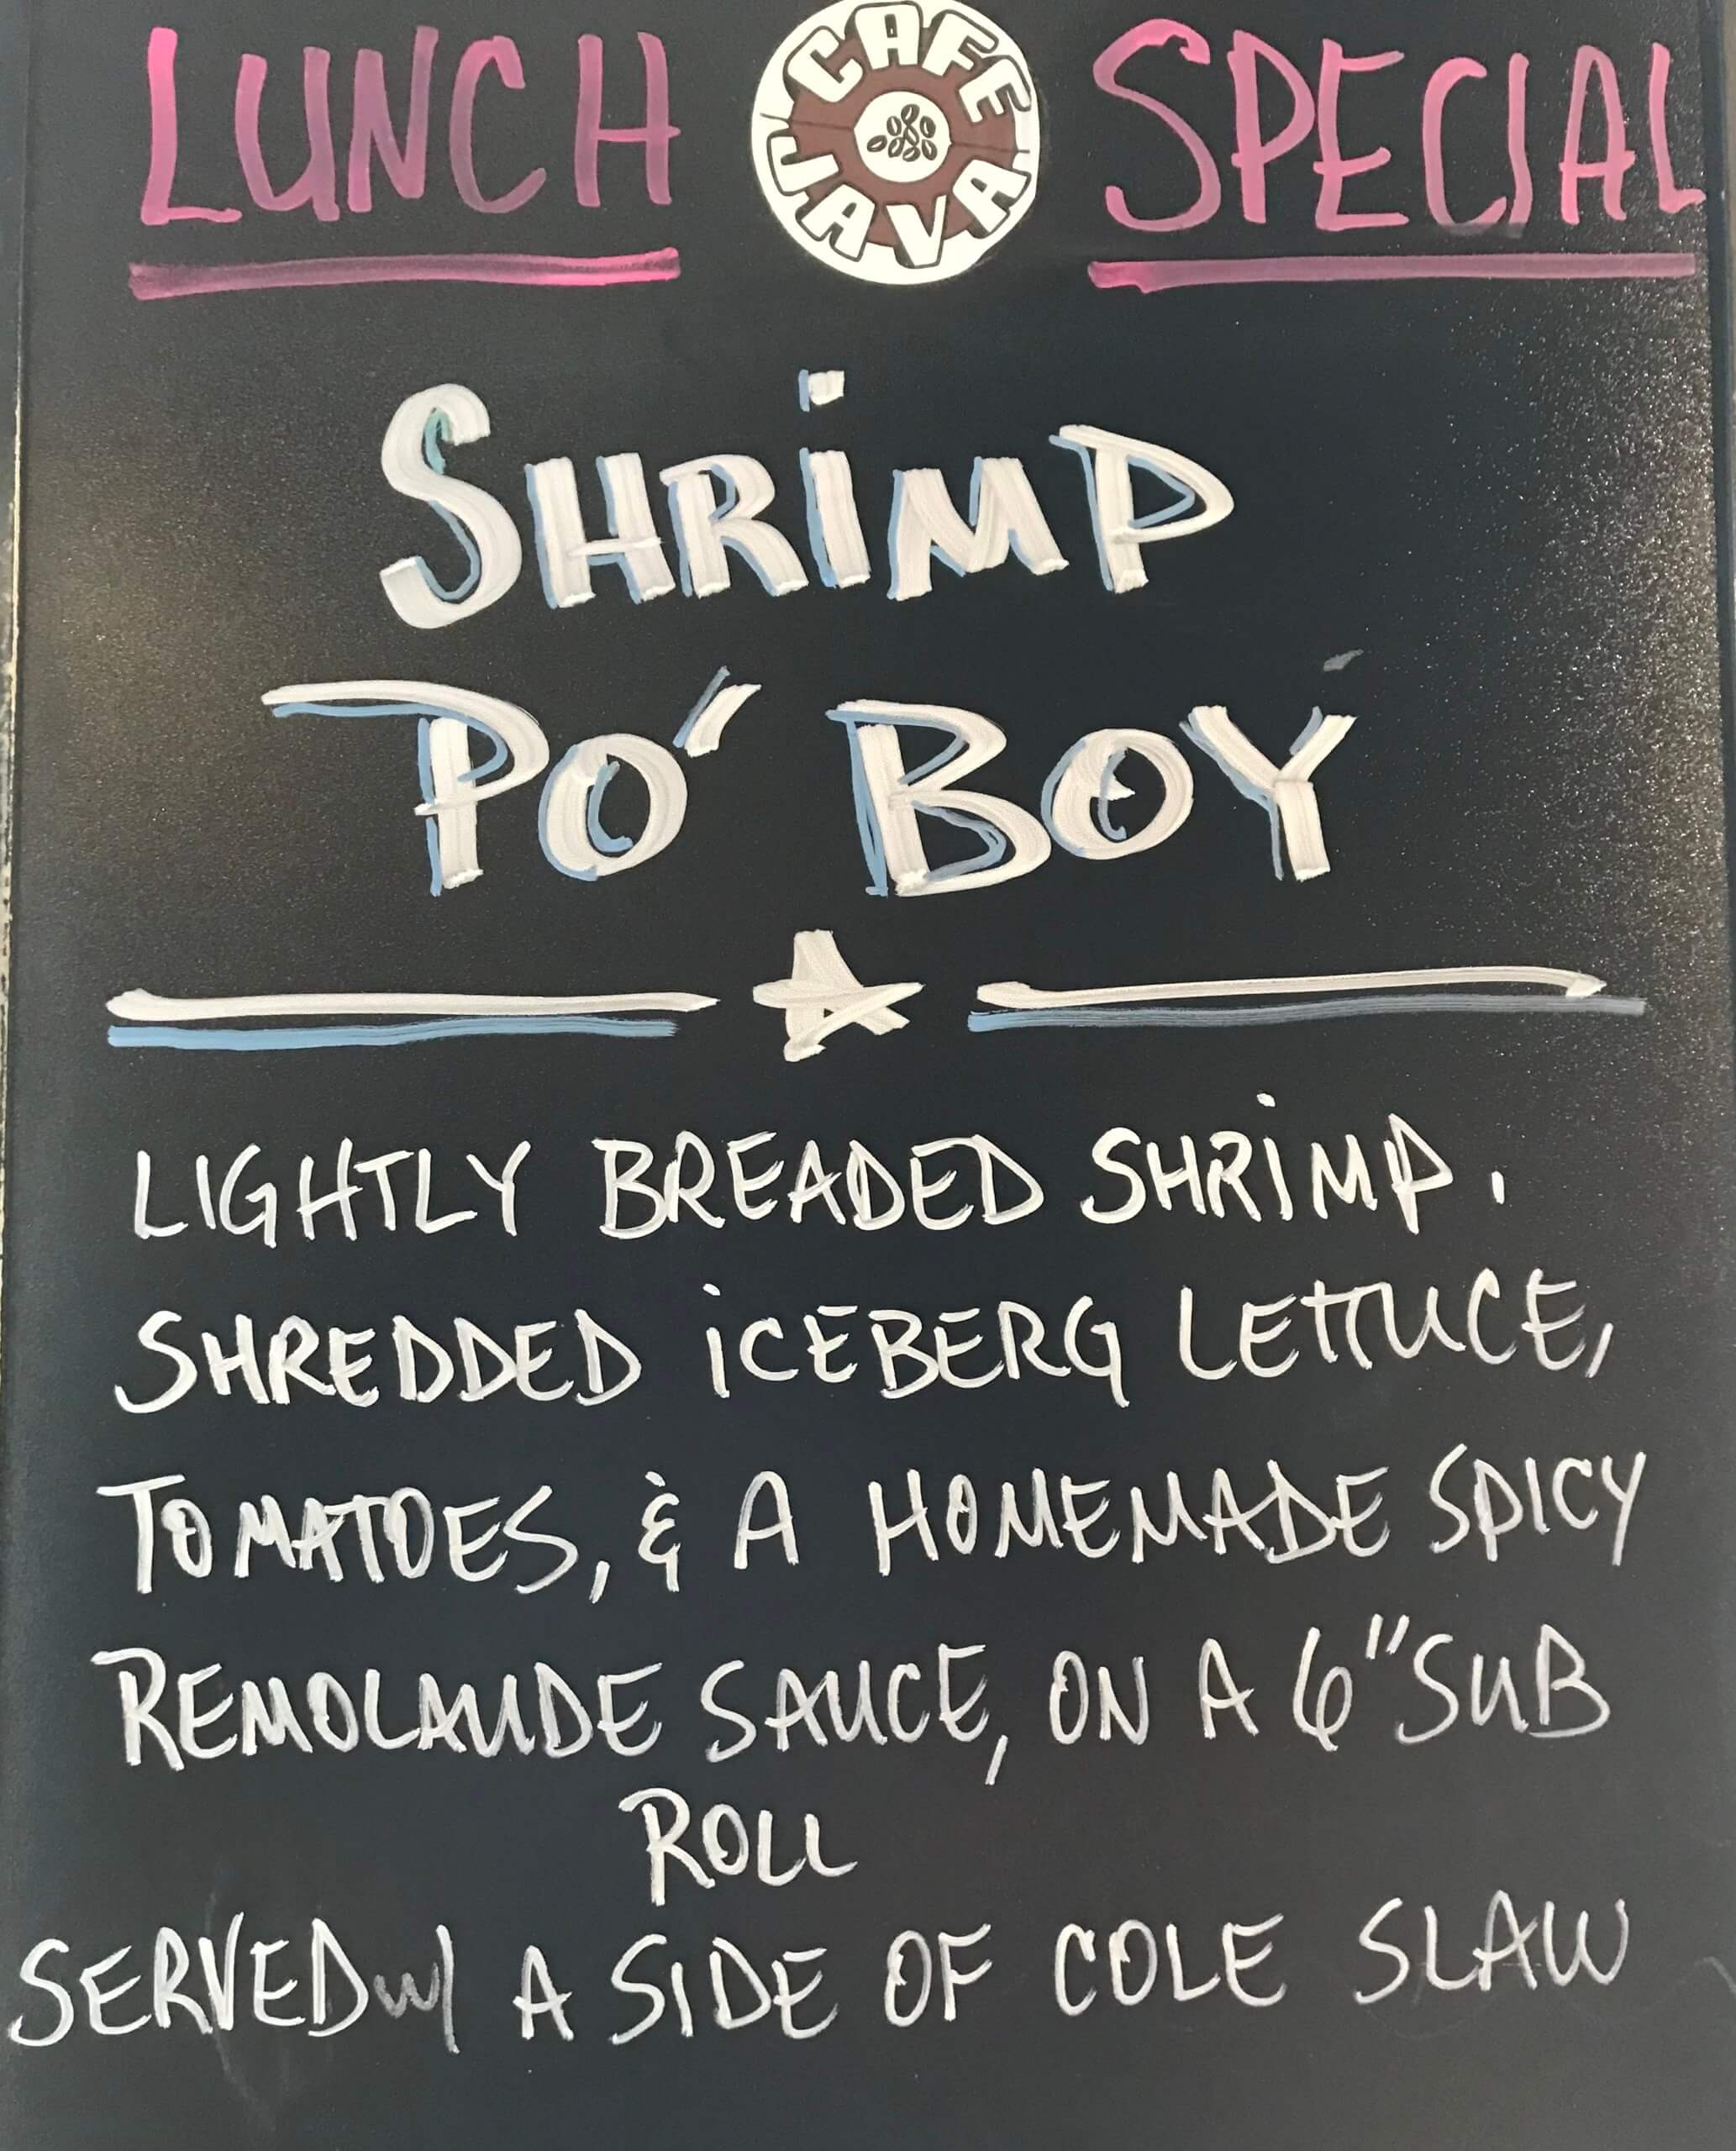 LUNCH CAFE JAVA SPECIAL
SHRiMP
PO' BOY
LIGHTLY BREADED SHRiMP.
SHREDDED iCEBERG LETTUCE,
TOMATOES, & A HOMEMADE SPICY
REMOLAUDE SAUCE, ON A 6" SUB
ROLL
SERVED w/ A SIDE OF COLE SLAW